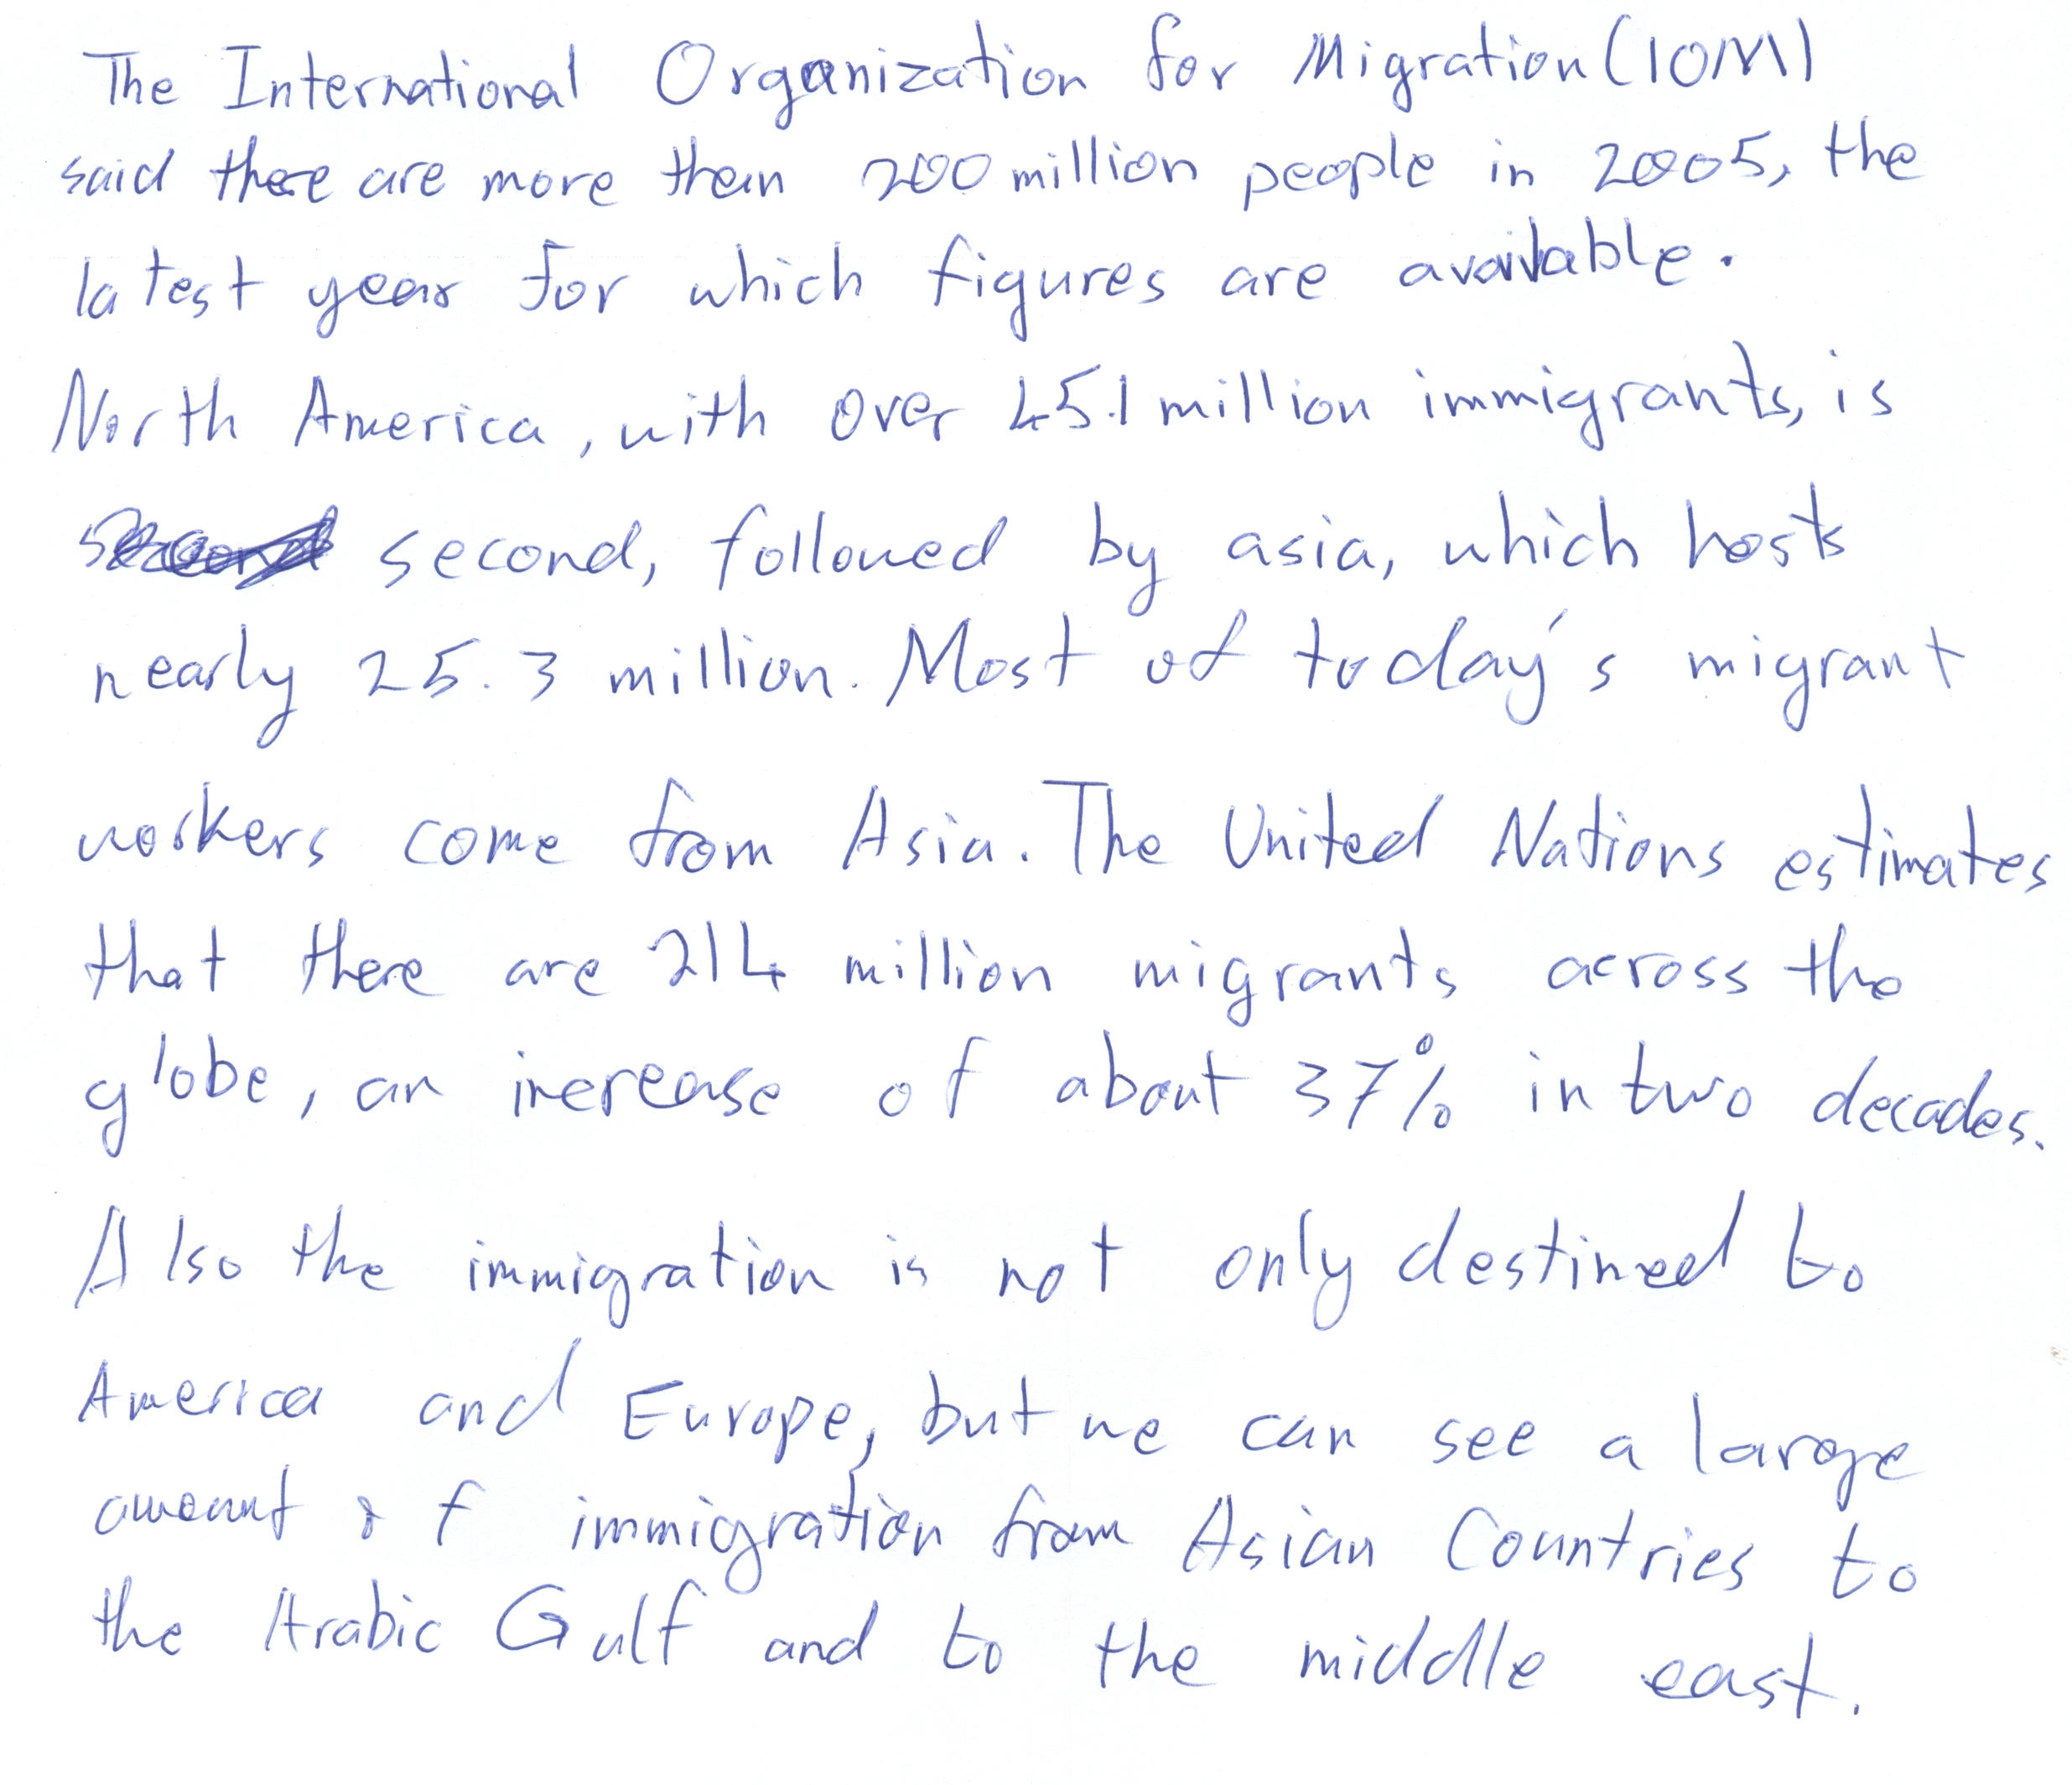 The International Organization for Migration (IOM)
said there are more than 200 million people in 2005, the
latest year for which figures are available.
North America, with over 45.1 million immigrants, is
second, followed by asia, which hosts
nearly 25.3 million. Most of today's migrant
workers come from Asia. The United Nations estimates
that there are 214 million migrants across the
globe, an increase of about 37% in two decades.
Also the immigration is not only destined to
America and Europe, but we can see a large
amount of immigration from Asian Countries to
the Arabic Gulf and to the middle east.